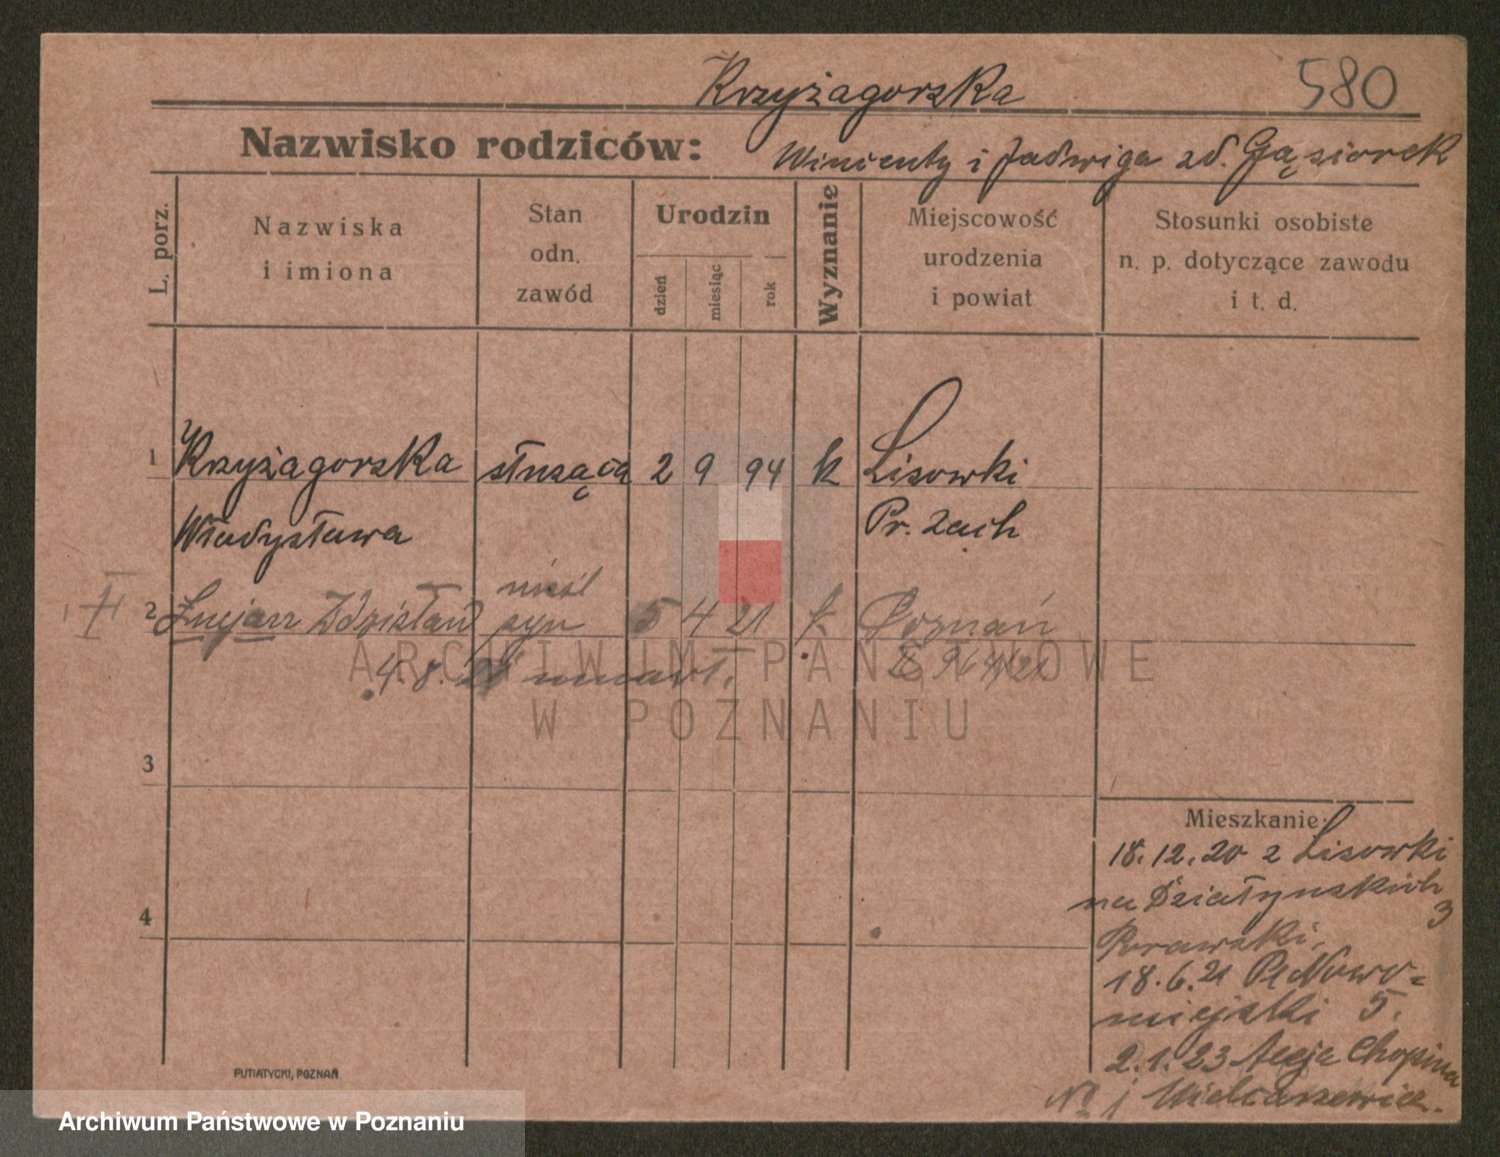 Krzyżagorska 580
Nazwisko rodziców: Wincenty i Jadwiga zd. Gąsiorek
L. porz.
Nazwiska
i imiona
Stan
odn.
zawód
Urodzin
dzień
miesiąc
rok
Wyznanie
Miejscowość
urodzenia
i powiat
Stosunki osobiste
n. p. dotyczące zawodu
i t. d.
1 Krzyżagorska służąca 2 9 94 k Lisowki
Władysława Pr. Zach
nieśl
2 Lucjan Zdzisław syn 5 4 21 k. Poznań
4.8.21 umarł.
ARCHIWUM PAŃSTWOWE
W POZNANIU
3
4
Mieszkanie:
18.12.20 z Lisowki
na Działyńskich
3
18.6.21 Pl Nowo-
miejski 5.
2.1.23 Aleje Chopina
No 1
PUTIATYCKI, POZNAŃ
Archiwum Państwowe w Poznaniu